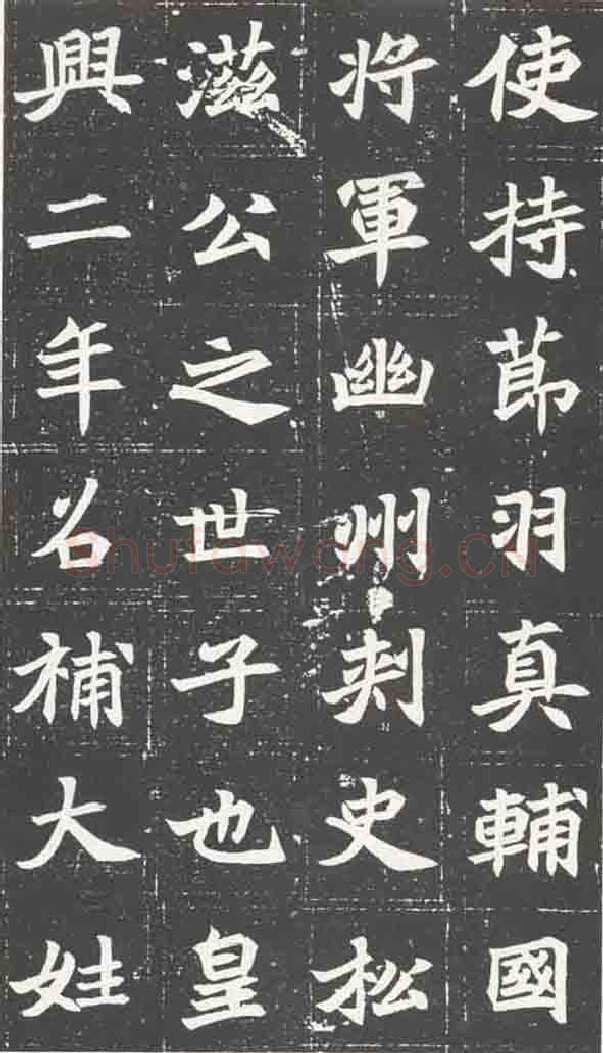 使持莭羽真輔國
将軍幽州刾史松
滋公之世子也皇
興二年召補大姓
Shufawang.CN